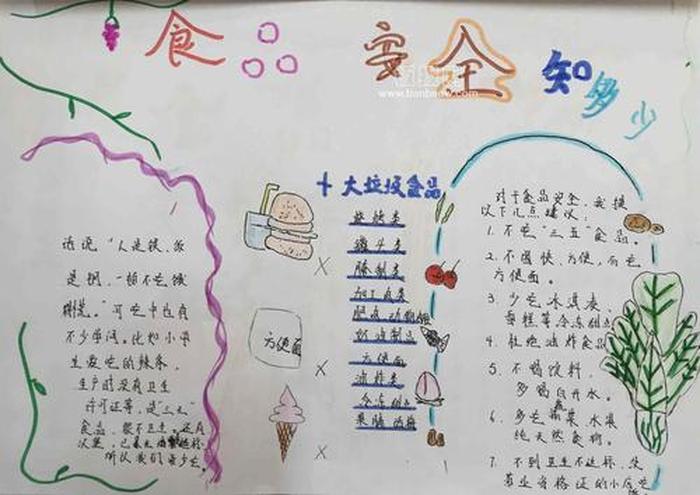 食品安全知多少
www.tianbaow.com
话说"人是铁,饭
是钢,一顿不吃饿
得慌。"可吃中也有
不少学问。比如小学
生爱吃的辣条,
生产时没有卫生
许可证等,是"三无"
食品,很不卫生。还有
汉堡,已
所以我们要少吃。
方便面
十大垃圾食品
烧烤类
罐头类
腌制类
加工肉类
肥肉动物
奶油制品
方便面
油炸类
冷冻甜点
果脯
对于食品安全,我提
以下几点建议:
1. 不吃"三五"食品。
2. 不图快,方便,而吃
方便面。
3. 少吃冰淇凌,
雪糕等冷冻甜点
4. 杜绝油炸食品
5. 不喝饮料,
多喝白开水。
6. 多吃蔬菜,水果
纯天然食物。
7. 不到卫生不达标,没
营业资格证的小店吃